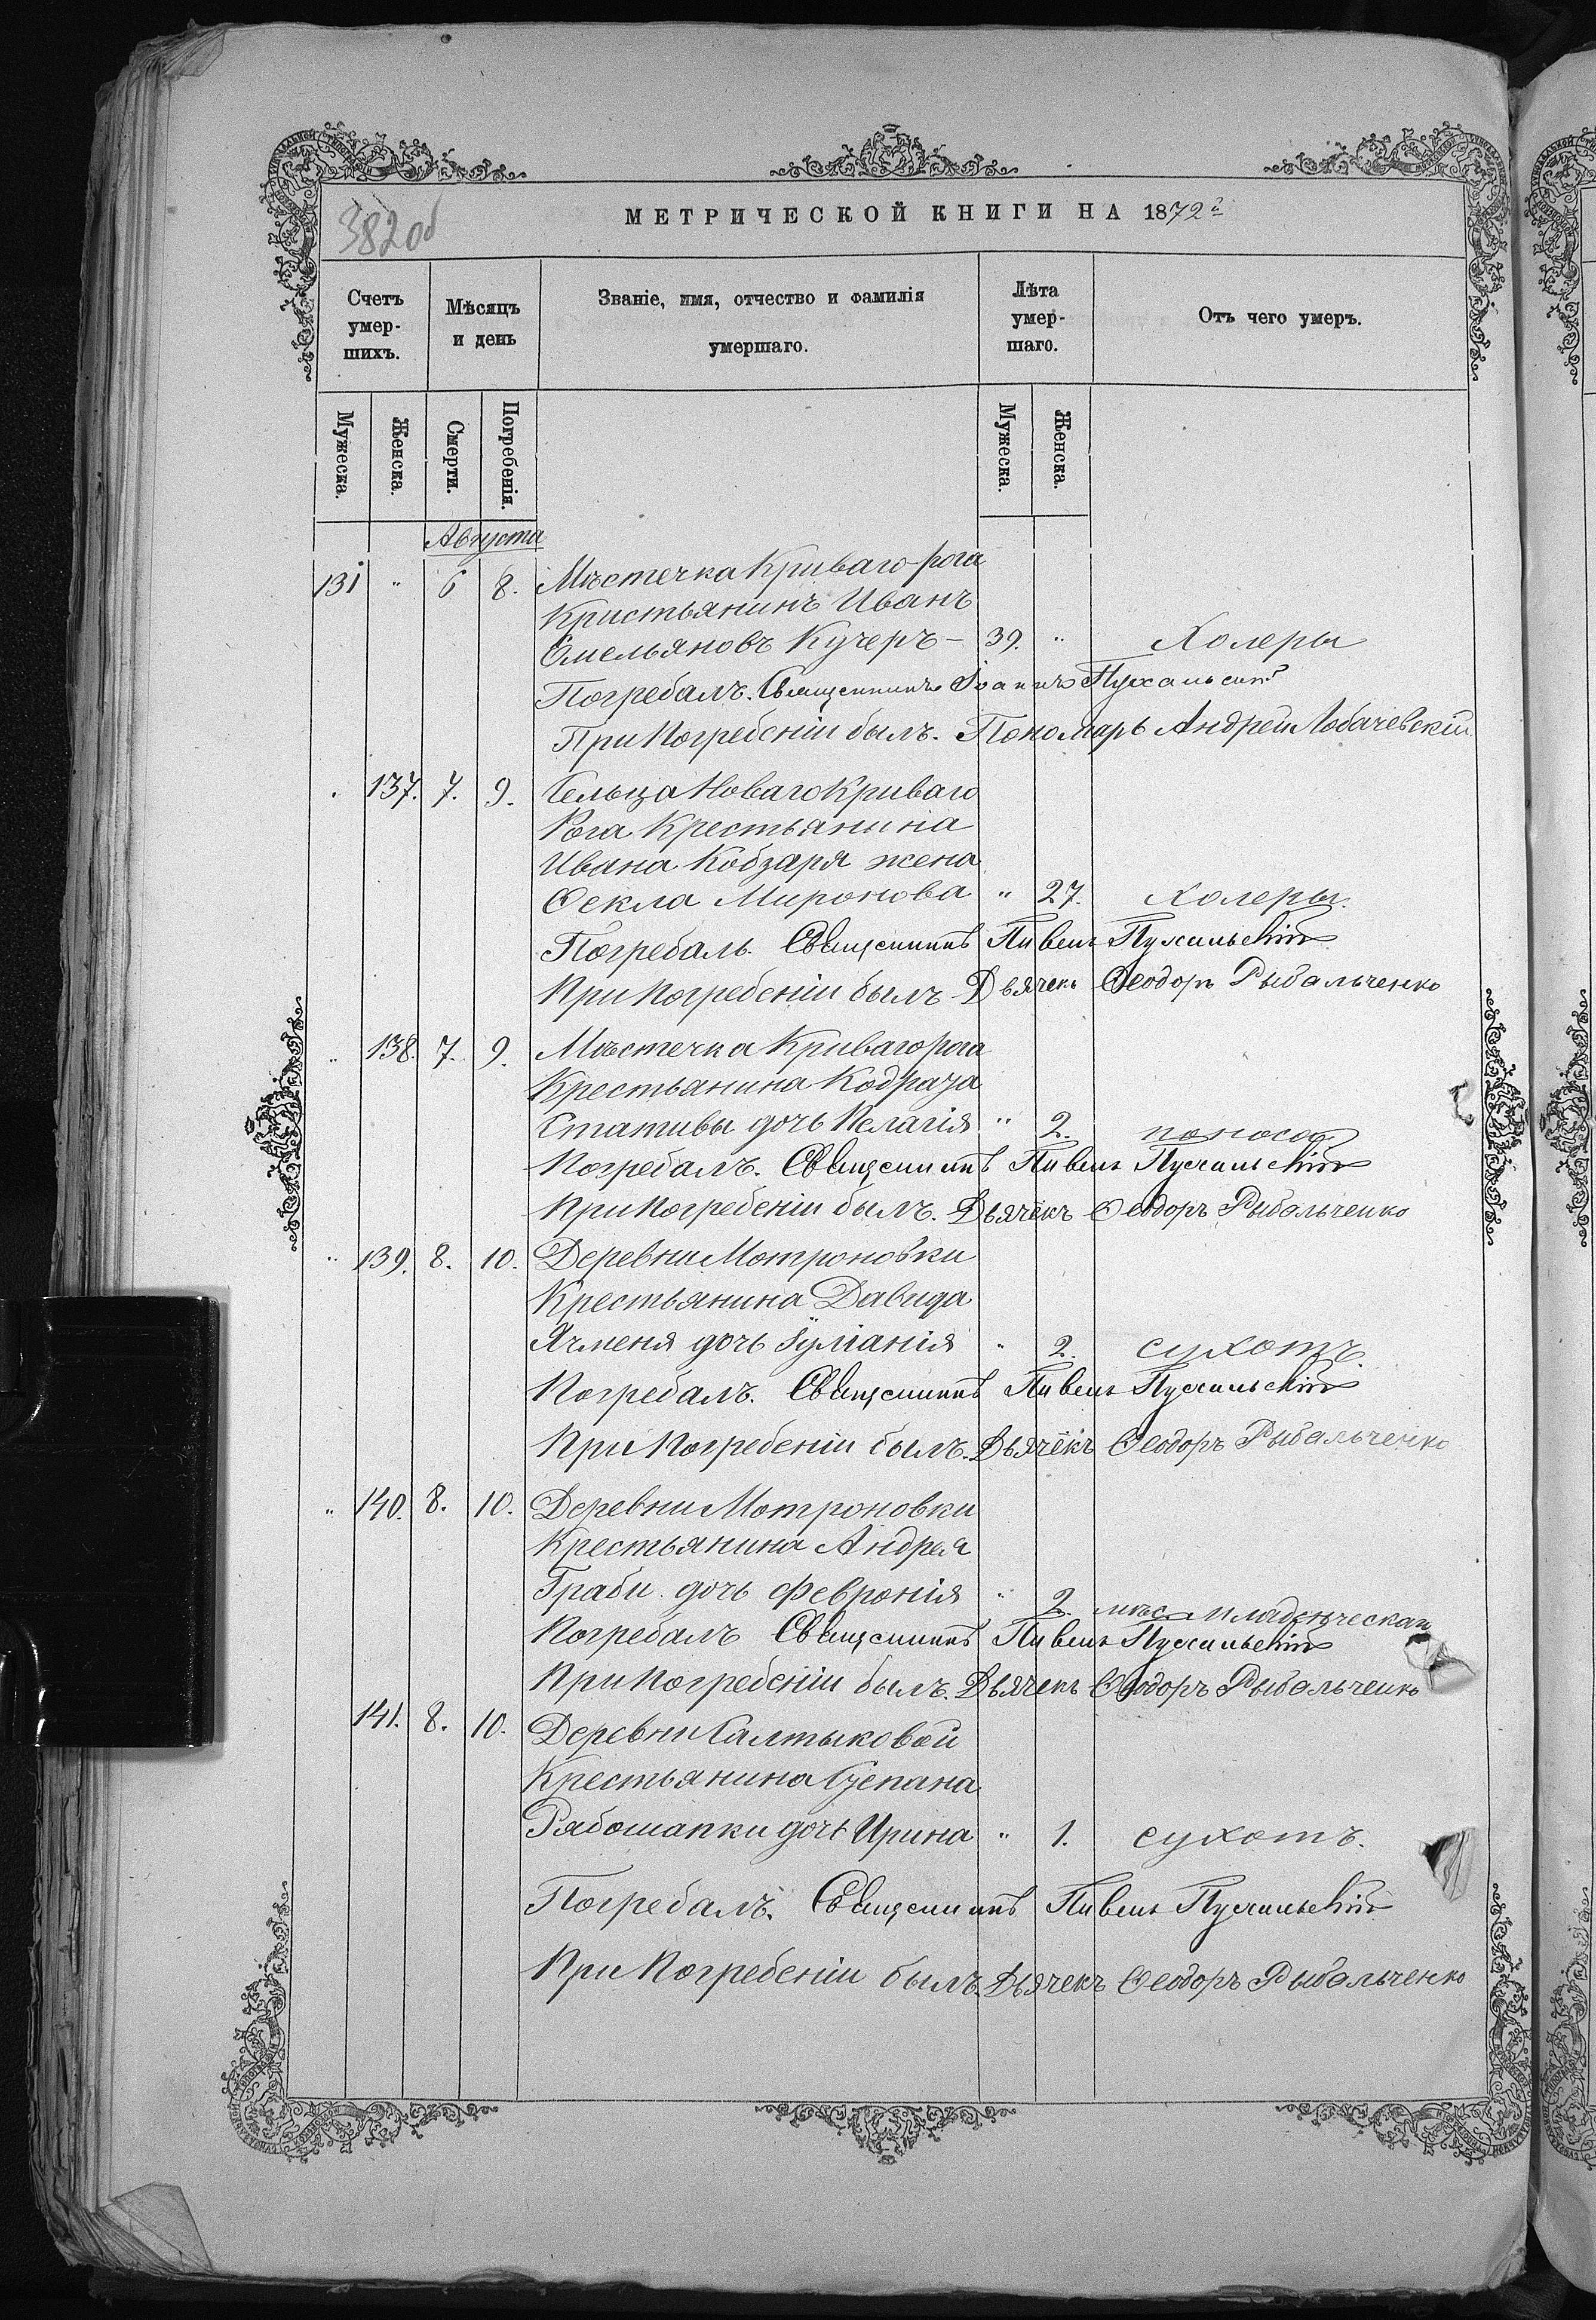 382об
МЕТРИЧЕСКОЙ КНИГИ НА 1872й
Счетъ умер-шихъ.
Мѣсяцъ и день
Званіе, имя, отчество и фамилія умершаго.
Лѣта умер-шаго.
Отъ чего умеръ.
Мужеска.
Женска.
Смерти.
Погребенія.
Мужеска.
Женска.
Августа
131 " 6 8. Мѣстечка Криваго рога
Кристьянинъ Иванъ
Омельяновъ Кучеръ - 39. " Холеры
Погребалъ. Священникъ Іоаннъ Пухальскій
При Погребеніи былъ. Пономарь Андрей Лобачевскій
. 137. 7. 9. Сельца Новаго Криваго
Рога Крестьянина
Ивана Кобзаря жена
Ѳекла Миронова " 27. Холеры.
Погребалъ. Священникъ Павелъ Пухальскій
При Погребеніи былъ Дьячекъ Ѳеодоръ Рыбальченко
" 138. 7. 9. Мѣстечка Криваго рога
Крестьянина Кодраза
Стативы дочь Пелагія " 2. поноса
Погребалъ. Священникъ Павелъ Пухальскій
При Погребеніи былъ. Дьячекъ Ѳеодоръ Рыбальченко
" 139. 8. 10. Деревни Мотроновки
Крестьянина Давида
Ячменя дочь Іуліанія " 2. сухотъ.
Погребалъ. Священникъ Павелъ Пухальскій
При Погребеніи былъ. Дьячекъ Ѳеодоръ Рыбальченко
" 140. 8. 10. Деревни Мотроновки
Крестьянина Андрея
Граби дочь Февронія " 2. мѣс. младенческая
Погребалъ Священникъ Павелъ Пухальскій
При Погребеніи былъ. Дьячекъ Ѳеодоръ Рыбальченко
141. 8. 10. Деревни Салтыковой
Крестьянина Степана
Рябошапки дочь Ирина " 1. сухотъ.
Погребалъ. Священникъ Павелъ Пухальскій
При Погребеніи былъ. Дьячекъ Ѳеодоръ Рыбальченко